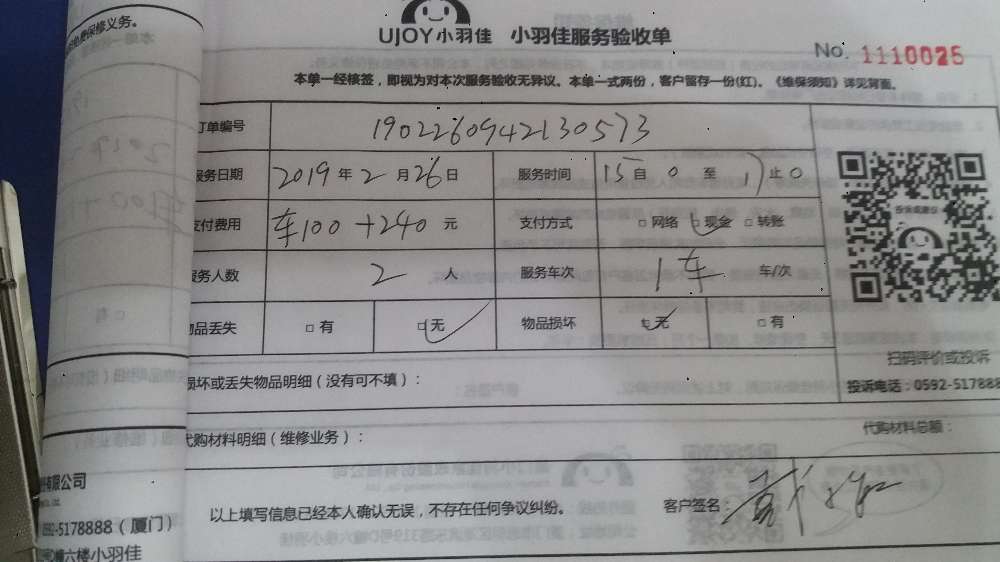 免费保修义务。
UJOY小羽佳 小羽佳服务验收单
No. 1110025
本单一经核签，即视为对本次服务验收无异议。本单一式两份，客户留存一份(红)。《维保须知》详见背面。
订单编号 1902260942130573
服务日期 2019 年 2 月 26 日 服务时间 15 自 0 至 17 止 0
支付费用 车100+240 元 支付方式 □网络 □现金 □转账
服务人数 2 人 服务车次 1车 车/次
物品丢失 □有 □无 物品损坏 □无 □有
扫码评价或投诉
投诉电话：0592-517888
损坏或丢失物品明细（没有可不填）：
代购材料明细（维修业务）： 代购材料总额：
以上填写信息已经本人确认无误，不存在任何争议纠纷。 客户签名：
有限公司
0592-5178888（厦门）
六楼小羽佳